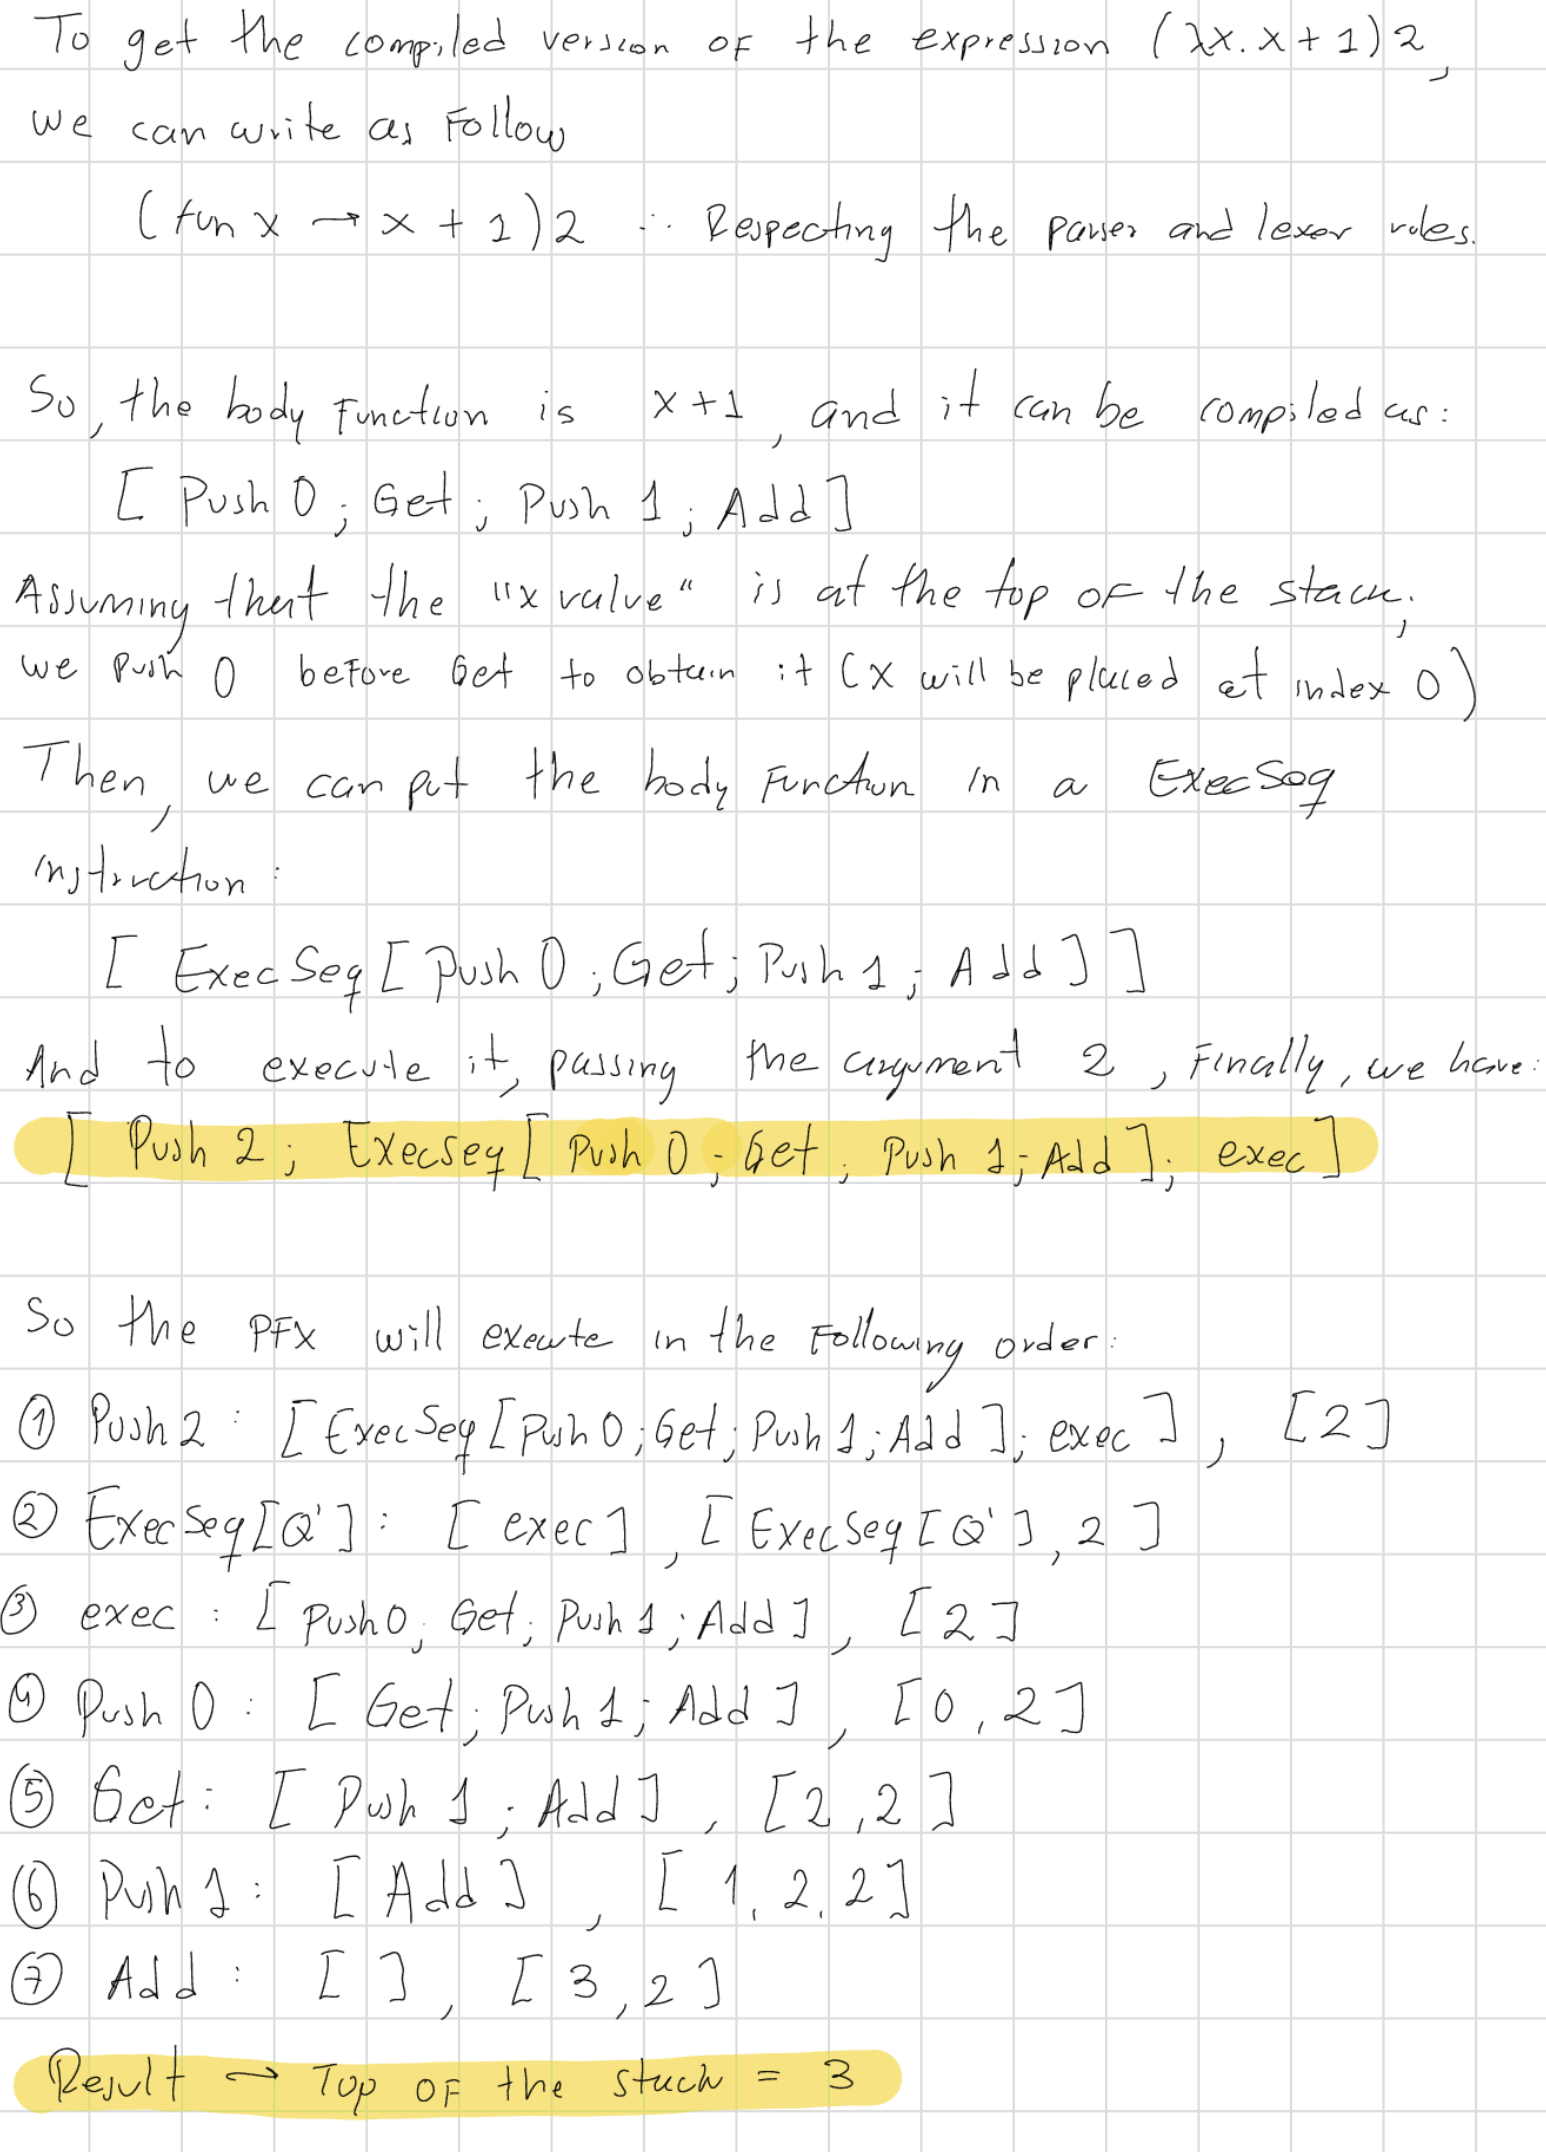 To get the compiled version of the expression (λx. x + 1) 2,
we can write as Follow
(fun x → x + 1) 2 ∴ Respecting the parser and lexer rules.
So, the body Function is x + 1, and it can be compiled as:
[ Push 0 ; Get ; Push 1 ; Add ]
Assuming that the "x value" is at the top of the stack,
we push 0 before Get to obtain it (x will be placed at index 0)
Then, we can put the body Function in a ExecSeq
instruction:
[ ExecSeq [ Push 0 ; Get ; Push 1 ; Add ] ]
And to execute it, passing the argument 2, Finally, we have:
[ Push 2 ; Execseq [ Push 0 ; Get ; Push 1 ; Add ] ; exec ]
So the PFX will execute in the Following order:
① Push 2 : [ ExecSeq [ Push 0 ; Get ; Push 1 ; Add ] ; exec ] , [ 2 ]
② ExecSeq [Q'] : [ exec ] , [ ExecSeq [Q'] , 2 ]
③ exec : [ Push 0 ; Get ; Push 1 ; Add ] , [ 2 ]
④ Push 0 : [ Get ; Push 1 ; Add ] , [ 0 , 2 ]
⑤ Get : [ Push 1 ; Add ] , [ 2 , 2 ]
⑥ Push 1 : [ Add ] , [ 1 , 2 , 2 ]
⑦ Add : [ ] , [ 3 , 2 ]
Result → Top of the stack = 3